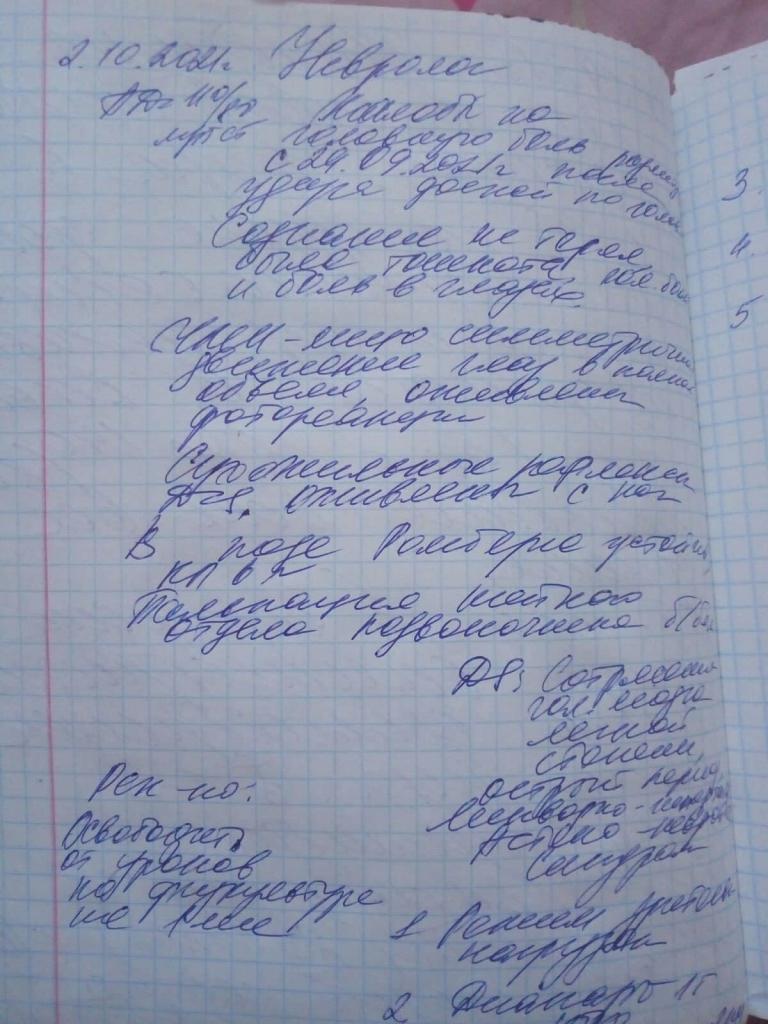 2.10.2021г Невролог
АД= 110/80 Жалобы на
головную боль
с 29.09.2021г после
удара доской по голов
Сознание не терял,
была тошнота, гол. боль
и боль в глазах.
ЧМН - лицо симметрично
движение глаз в полном
объеме, оживлены
фотореакции
Сухожильные рефлексы
D=S, оживлены с ног
В позе Ромберга устойчив,
Пальпация шейного
отдела позвоночника б/бол
DS: Сотрясение
гол. мозга
легкой
степени,
острый период
Ликворно-
Астено-невро
синдром
Рек-но:
Освободить
от уроков
по физкультуре
на 1 мес
1 Режим
нагрузок
2 Диакарб 1т
3.
4.
5